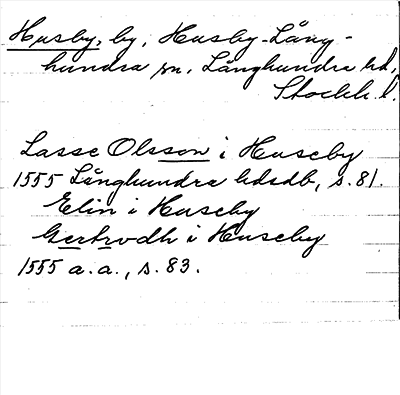 Husby, by, Husby-Lång-
hundra sn, Långhundra hd,
Stockh. l.
Lasse Olsson i Huseby
1555 Långhundra hdsdb, s. 81.
Elin i Huseby
Gertrvdh i Huseby
1555 a.a., s. 83.